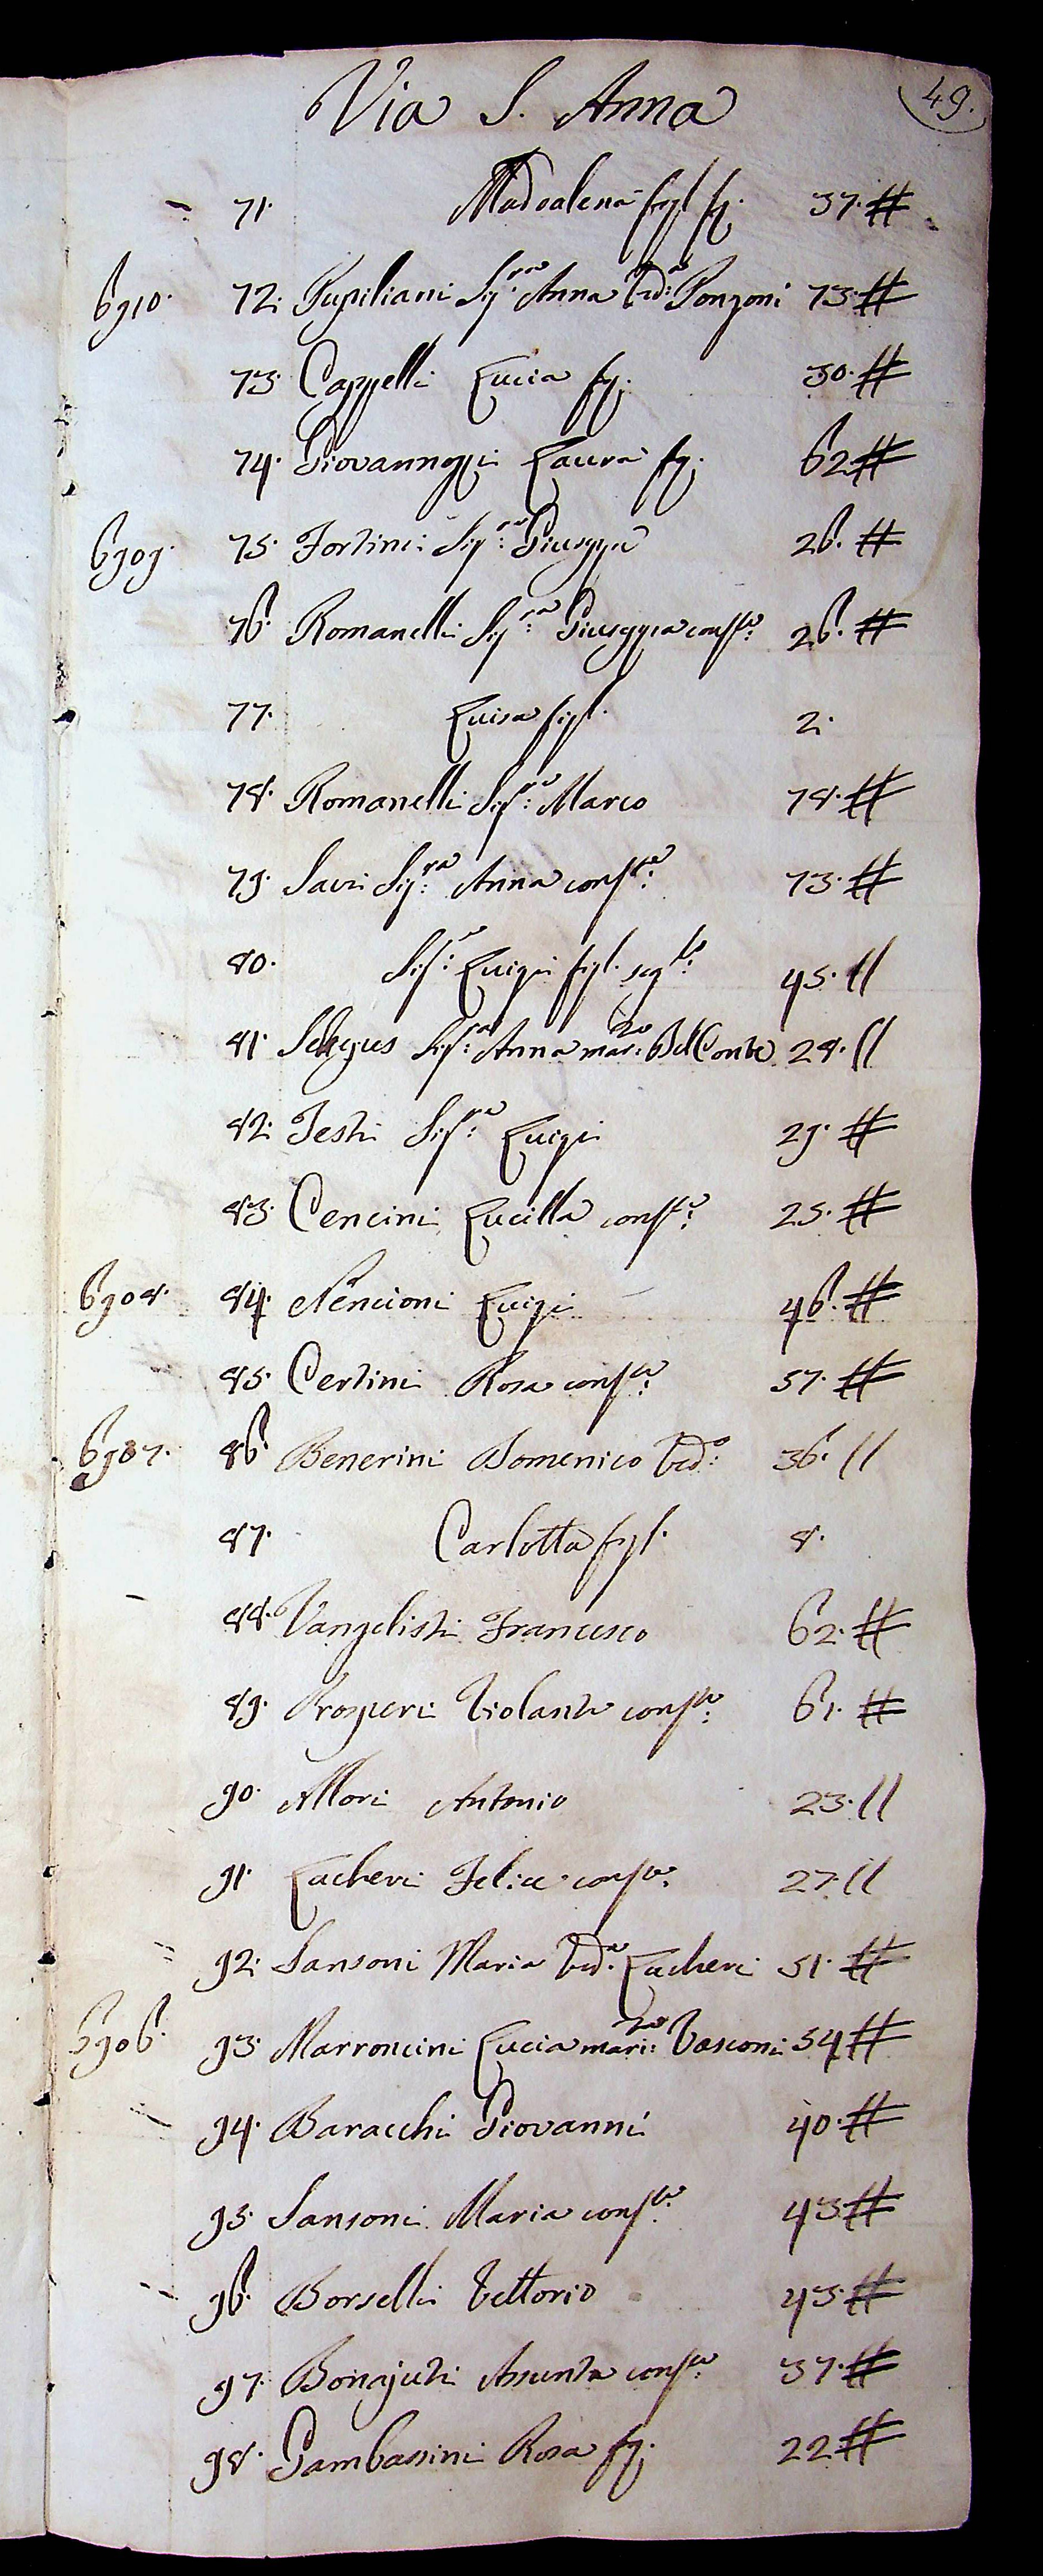 Via S. Anna 49.
71. Madoalena figl. fg. 37. #
6910. 72. Pupiliani Sig.ra Anna Ved.a Ponzoni 73. #
73. Cappelli Lucia fg. 30. #
74. Giovannozzi Laura fg. 62 #
6909. 75. Fortini Sig.re Giuseppe 26. #
76. Romanelli Sig.ra Giuseppa cons.te 26. #
77. Luisa figl. 2.
78. Romanelli Sig.re Marco 78. #
79. Savi Sig.ra Anna cons.te 73. #
80. Sig.re Luigi figl. seg.to 45. //
81. Sig.ra Anna mar.ta Del Conte 28. //
82. Testi Sig.re Luigi 29. #
83. Cencini Lucilla cons.te 25. #
6908. 84. Nencioni Luigi 46. #
85. Certini Rosa cons.te 57. #
6907. 86. Benerini Domenico Ved.o 36. //
87. Carlotta figl. 8.
88. Vangelisti Francesco 62. #
89. Prosperi Violante cons.te 61. #
90. Allori Antonio 23. //
91. Lacheri Felice cons.te 27. //
92. Sansoni Maria Ved.a Lacheri 51. #
6906. 93. Marroncini Lucia mari.ta Vasconi 54 #
94. Baracchi Giovanni 40. #
95. Sansoni Maria cons.te 43. #
96. Borselli Vettorio 43. #
97. Bonajuti Assunta cons.te 37. #
98. Gambassini Rosa fg. 22 #